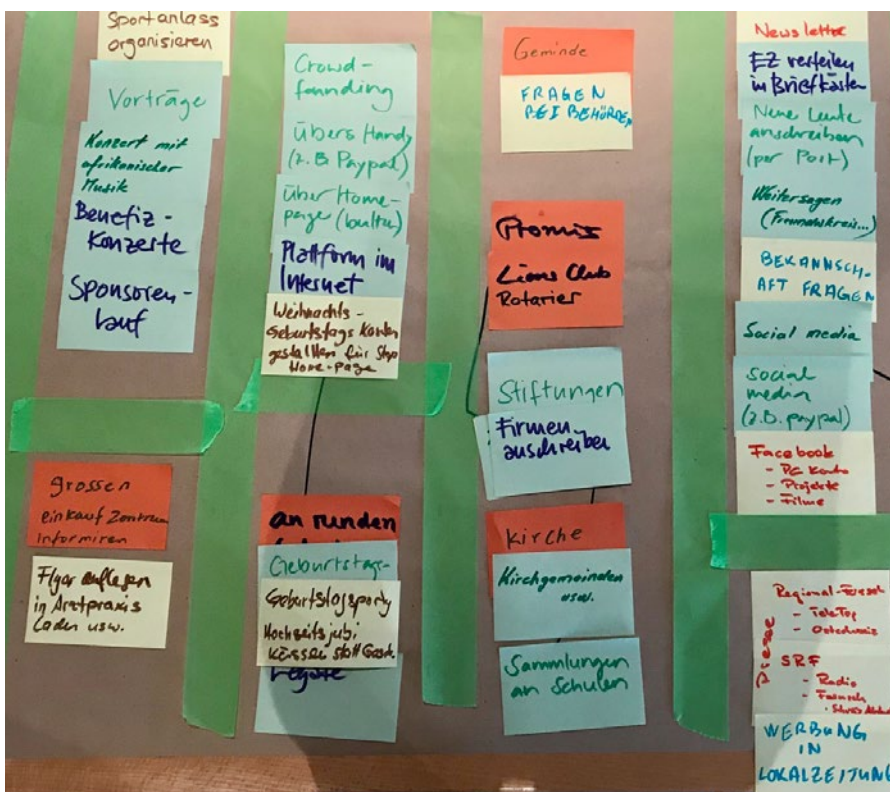 Sportanlass
organisieren
Vorträge
Konzert mit
afrikanischer
Musik
Benefiz-
Konzerte
Sponsoren-
lauf
grossen
einkauf Zentrum
Informiren
Flyer auflegen
in Arztpraxis
Laden usw.
Crowd-
founding
übers Handy
(z.B Paypal)
über Home-
page
Plattform im
Internet
Weihnachts-
Geburtstags Karten
gestallten für
Home-page
an runden
Geburtstags-
Geburtstagsparty
Hochzeitsjubi
statt
Legate
Geminde
FRAGEN
BEI BEHÖRDEN
Promis
Lions Club
Rotarier
Stiftungen
Firmen
anschreiben
Kirche
Kirchgemeinden
usw.
Sammlungen
an Schulen
Newsletter
EZ verteilen
in Briefkästen
Neue Leute
anschreiben
(per Post)
Weitersagen
(Freundeskreis...)
BEKANNSCH-
AFT FRAGEN
Social media
Social
media
(z.B. paypal)
Facebook
- Konto
- Projekte
- Filme
Presse
Regional-
- TeleTop
- Ostschweiz
SRF
- Radio
WERBUNG
IN
LOKALZEITUNG